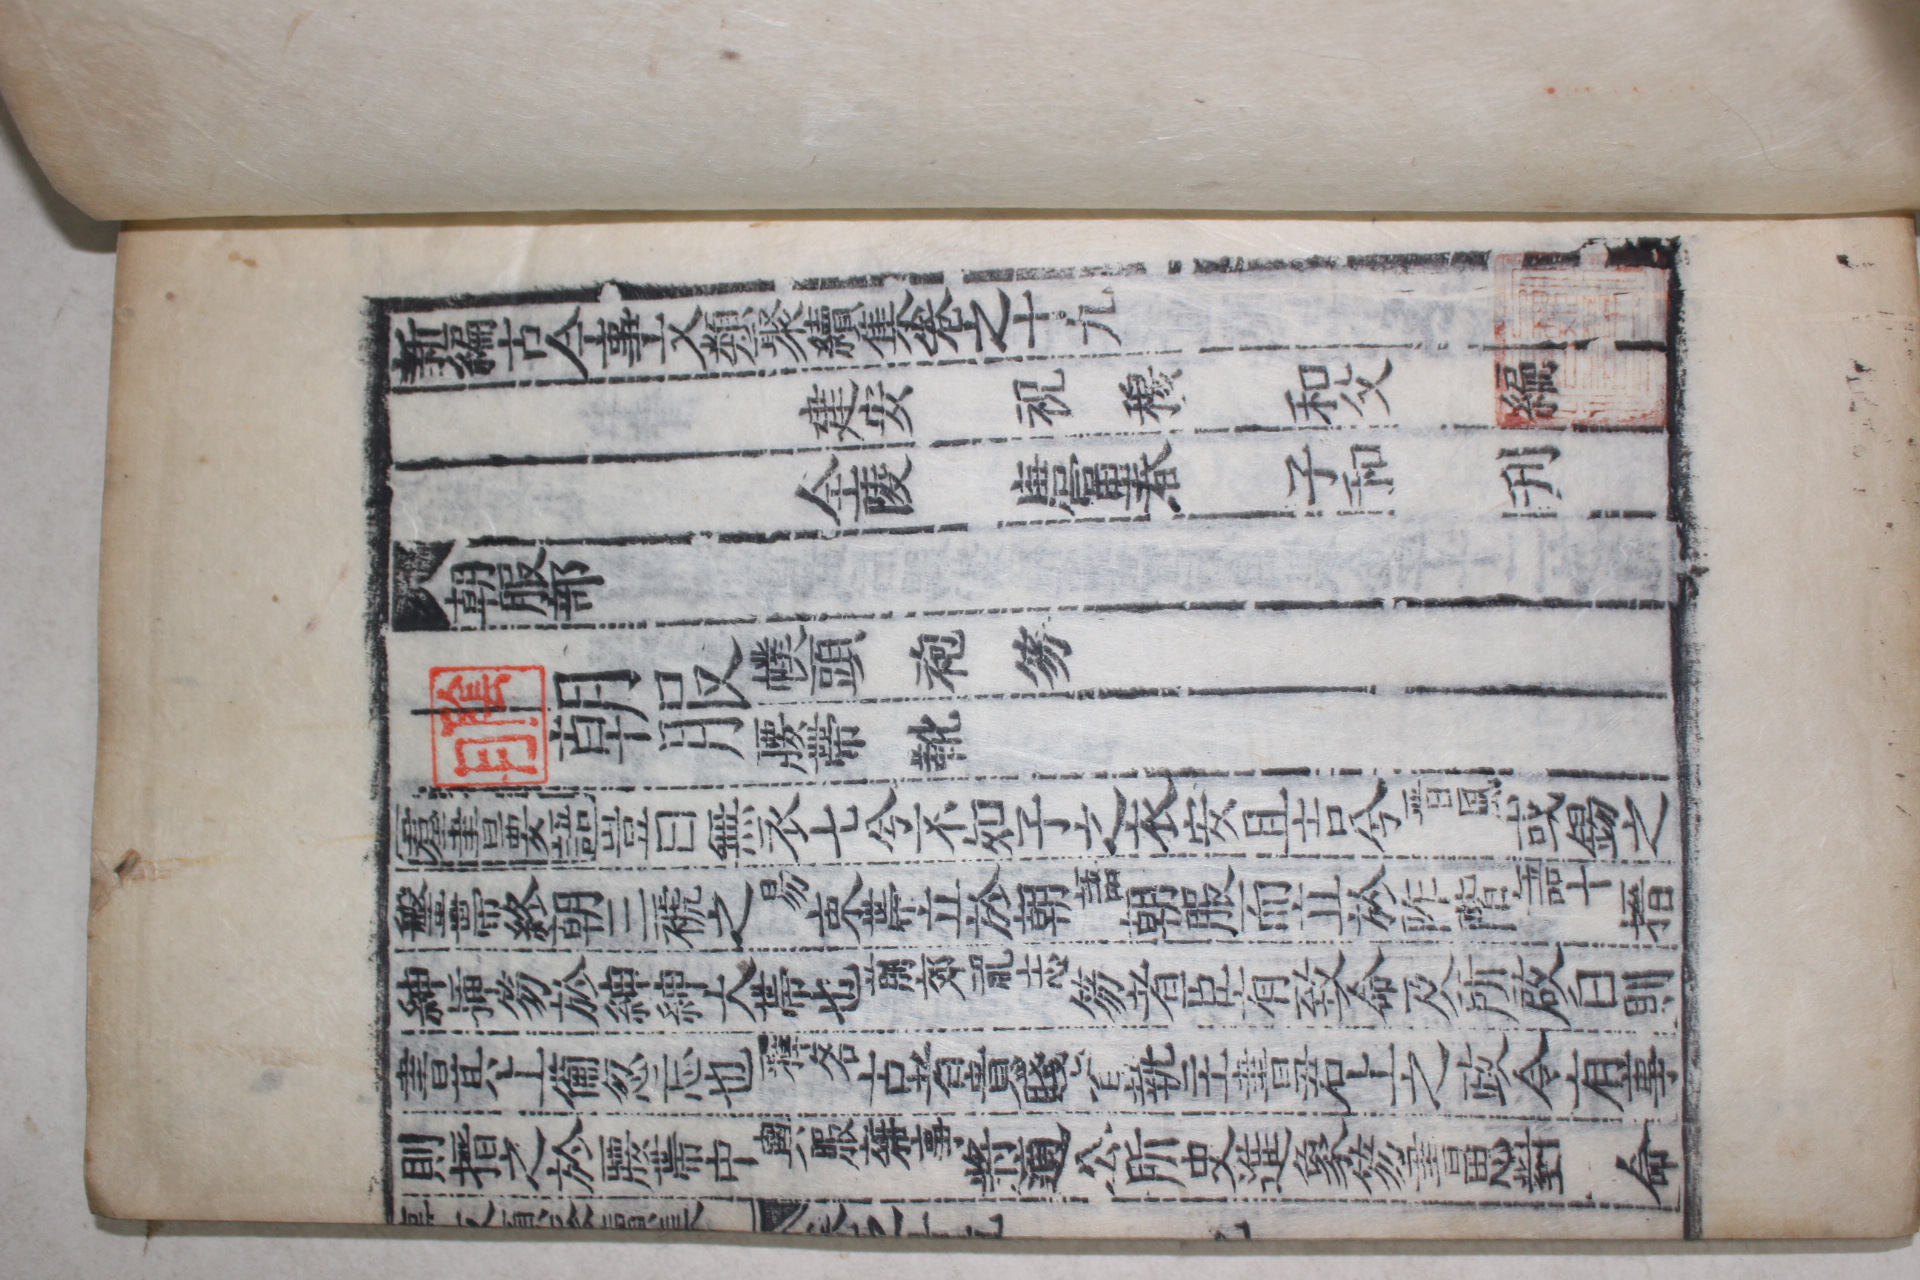 新編古今事文類聚續集卷之十九
建安 祝 穆 和父 編
金陵 唐富春 子和 刋
朝服部
朝服 幞頭 袍 笏
腰帶 靴
羣書要語豈曰無衣七兮不如子之衣安且吉兮晉風或錫之
鞶帶終朝三褫之易束帶立於朝語朝服而立於阼階語十搢
紳搢笏於紳紳大帶也前郊祀志笏者臣有致命及所啟白則
書其上備忽忘也釋名古者貴賤皆執笏書君上之政令有事
則搢之於腰帶中輿服雜事將適公所史進象笏書思對 命
事文類聚續集 卷之十九